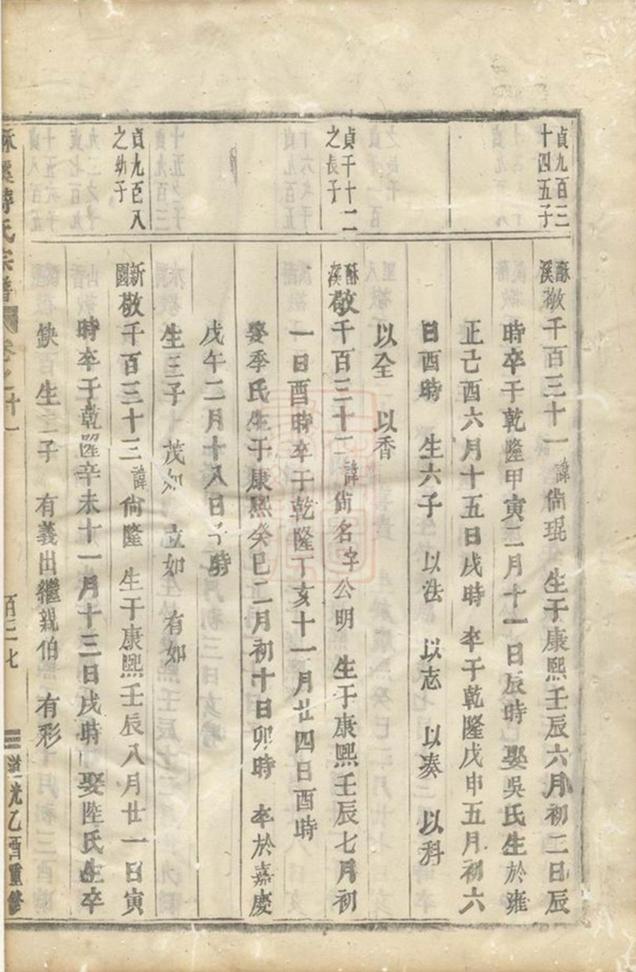 貞九百三
十四五子
酥溪敬千百三十一 諱尙琨 生于康熙壬辰六月初二日辰
時卒于乾隆甲寅二月十一日辰時 娶吳氏生於雍
正己酉六月十五日戌時 卒于乾隆戊申五月初六
日酉時 生六子 以法 以志 以奏 以科
以全 以香
貞千十二
之長子
酥溪敬千百三十二 諱尙名字公明 生于康熙壬辰七月初
一日酉時卒于乾隆丁亥十一月廿四日酉時
娶季氏生于康熙癸巳二月初十日卯時 卒於嘉慶
戊午二月十八日子時
生三子 茂如 立如 有如
貞九百八
之幼子
新國敬千百三十三 諱尙隆 生于康熙壬辰八月廿一日寅
時卒于乾隆辛未十一月十三日戌時 娶陸氏生卒
缺 生二子 有義出繼親伯 有彩
氏宗譜 卷之十一 百三七 道光乙酉重修